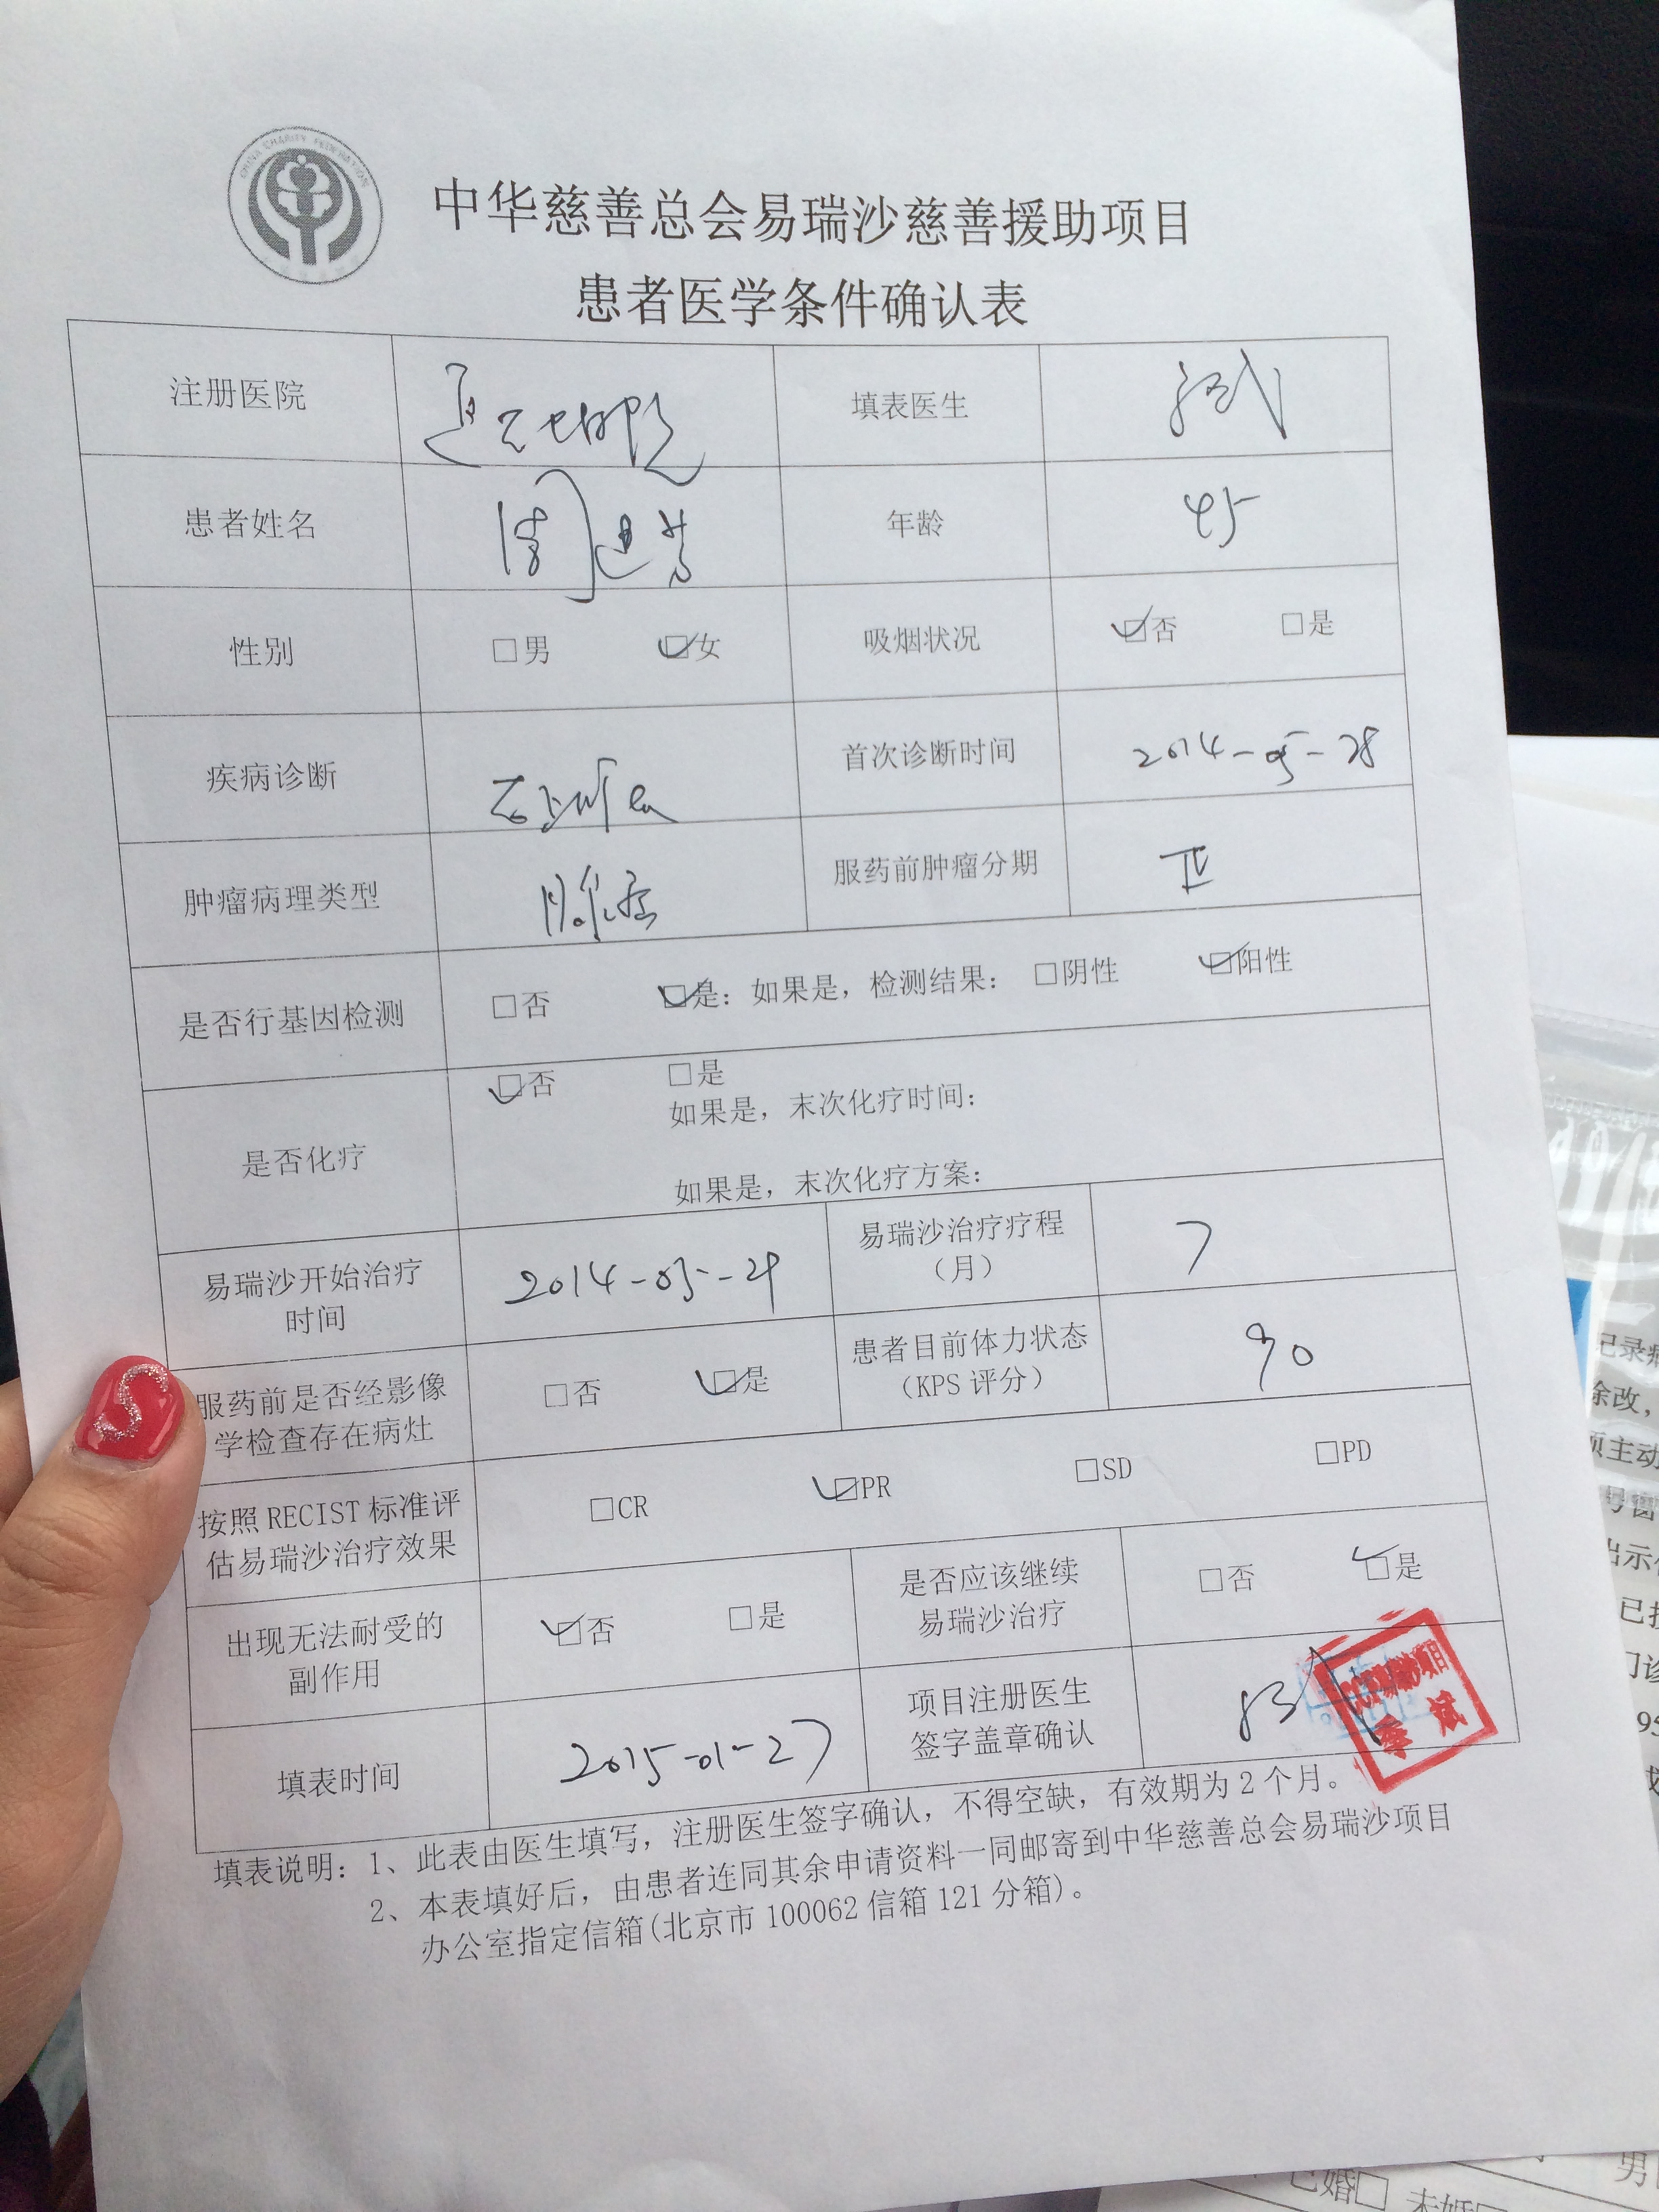 CHINA CHARITY FEDERATION
中华慈善总会易瑞沙慈善援助项目
患者医学条件确认表
注册医院
填表医生
患者姓名
年龄 45
性别 □男 ☑女 吸烟状况 ☑否 □是
疾病诊断
首次诊断时间 2014-05-28
肿瘤病理类型 腺癌 服药前肿瘤分期 IV
是否行基因检测 □否 ☑是：如果是，检测结果： □阴性 ☑阳性
是否化疗 ☑否 □是
如果是，末次化疗时间：
如果是，末次化疗方案：
易瑞沙开始治疗
时间
2014-05-29
易瑞沙治疗疗程
（月）
7
服药前是否经影像
学检查存在病灶
□否 ☑是
患者目前体力状态
（KPS 评分）
90
按照 RECIST 标准评
估易瑞沙治疗效果
□CR ☑PR □SD □PD
出现无法耐受的
副作用
☑否 □是
是否应该继续
易瑞沙治疗
□否 ☑是
填表时间 2015-01-27
项目注册医生
签字盖章确认
易瑞沙项目
填表说明：1、此表由医生填写，注册医生签字确认，不得空缺，有效期为 2 个月。
2、本表填好后，由患者连同其余申请资料一同邮寄到中华慈善总会易瑞沙项目
办公室指定信箱(北京市 100062 信箱 121 分箱)。
记录
涂改，
须主动
号窗
出示
已
门诊
95
已婚□ 未婚□
男